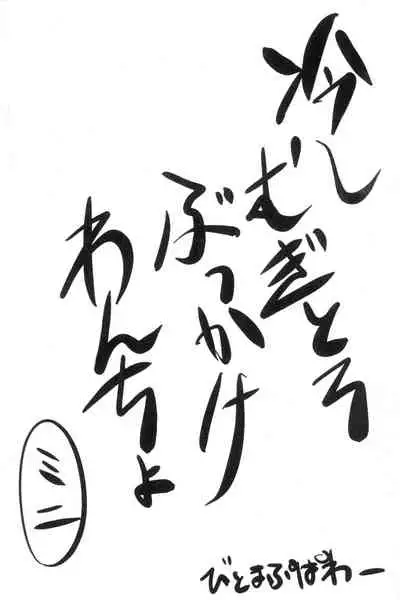 冷しむぎとろ
ぶっかけ
わんちょ
ミニ
びとまふぱわー